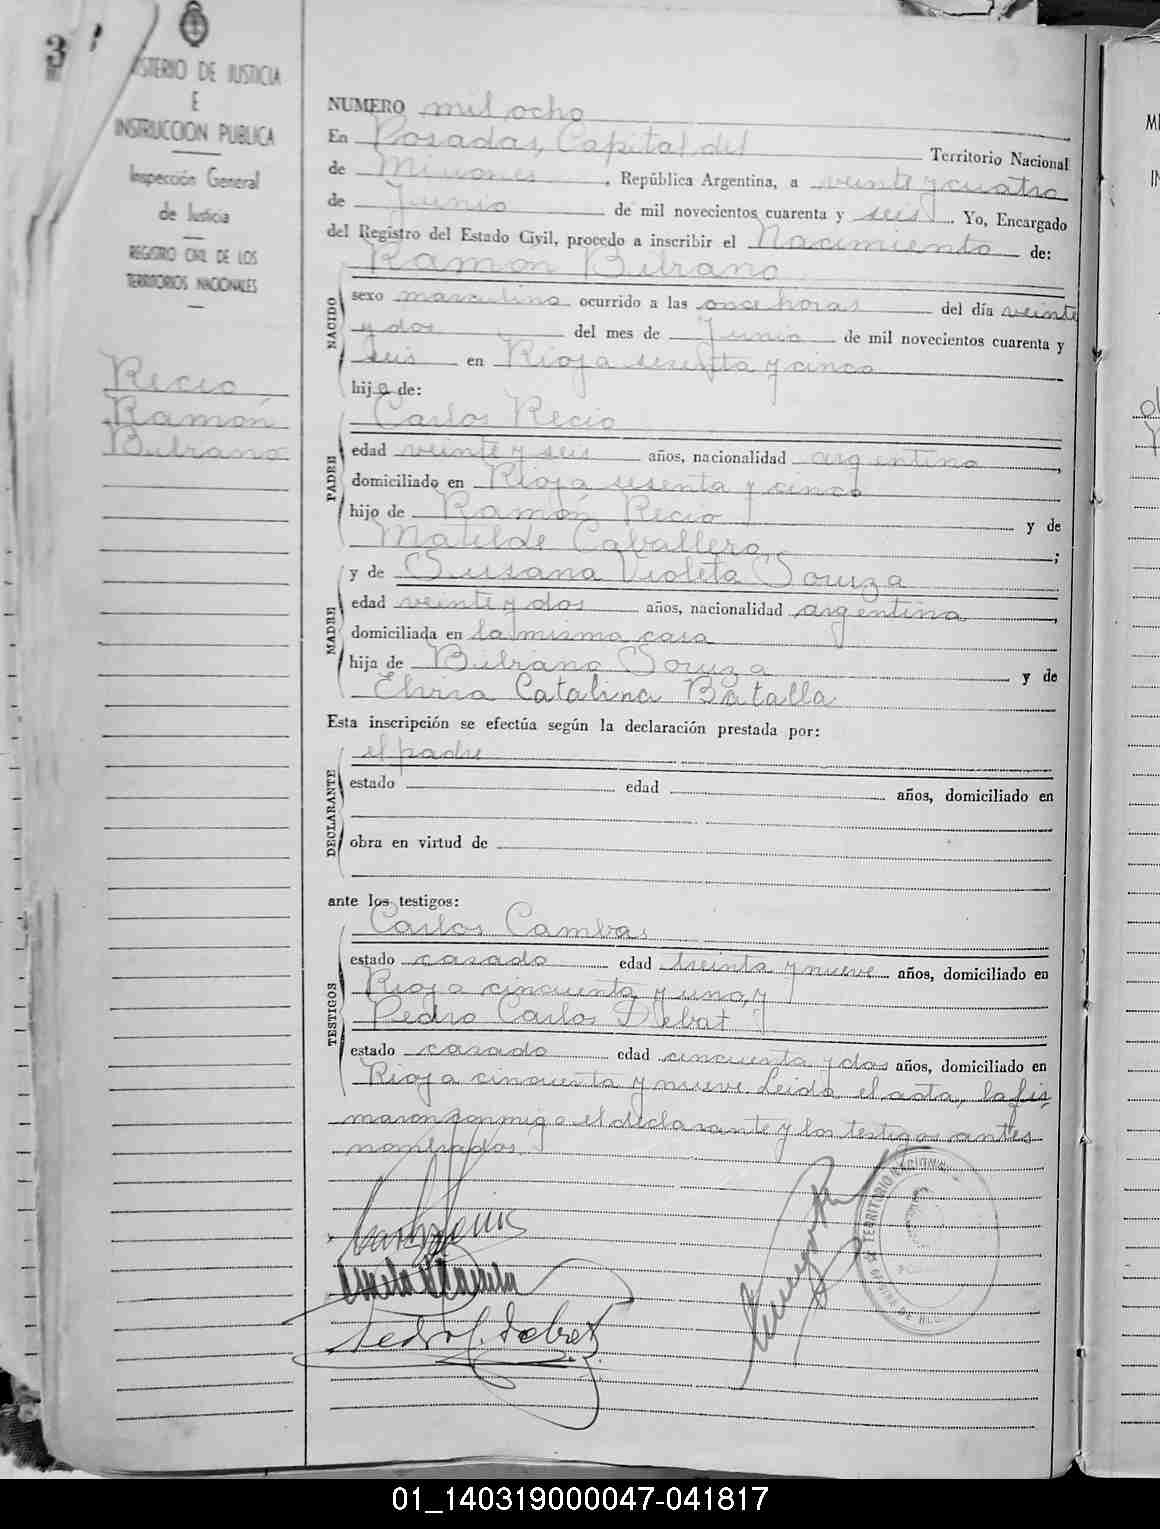 3
MINISTERIO DE JUSTICIA
E
INSTRUCCION PUBLICA
Inspección General
de Justicia
REGISTRO CIVIL DE LOS
TERRITORIOS NACIONALES
Recio
Ramón
Belrano
NUMERO mil ocho
En Posadas, Capital del Territorio Nacional
de Misiones, República Argentina, a veinte y cuatro
de Junio de mil novecientos cuarenta y seis Yo, Encargado
del Registro del Estado Civil, procedo a inscribir el Nacimiento de:
Ramón Belrano
NACIDO
sexo masculino ocurrido a las once horas del día veinte
y dos del mes de Junio de mil novecientos cuarenta y
seis en Rioja sesenta y cinco
hijo de:
PADRE
Carlos Recio
edad veinte y seis años, nacionalidad argentino,
domiciliado en Rioja sesenta y cinco
hijo de Ramón Recio y de
Matilde Caballero,;
MADRE
y de Susana Violeta Souza
edad veinte y dos años, nacionalidad argentina,
domiciliada en la misma casa
hija de Belrano Souza y de
Elvira Catalina Batalla
Esta inscripción se efectúa según la declaración prestada por:
DECLARANTE
el padre
estado edad años, domiciliado en
obra en virtud de
ante los testigos:
TESTIGOS
Carlos Cambas
estado casado edad treinta y nueve años, domiciliado en
Rioja cincuenta y uno, y
Pedro Carlos Debat
estado casado edad cincuenta y dos años, domiciliado en
Rioja cincuenta y nueve. Leida el acta, la fir
maron conmigo el declarante y los testigos antes
nombrados.
Pedro C. Debat
TERRITORIO NACIONAL
01_140319000047-041817